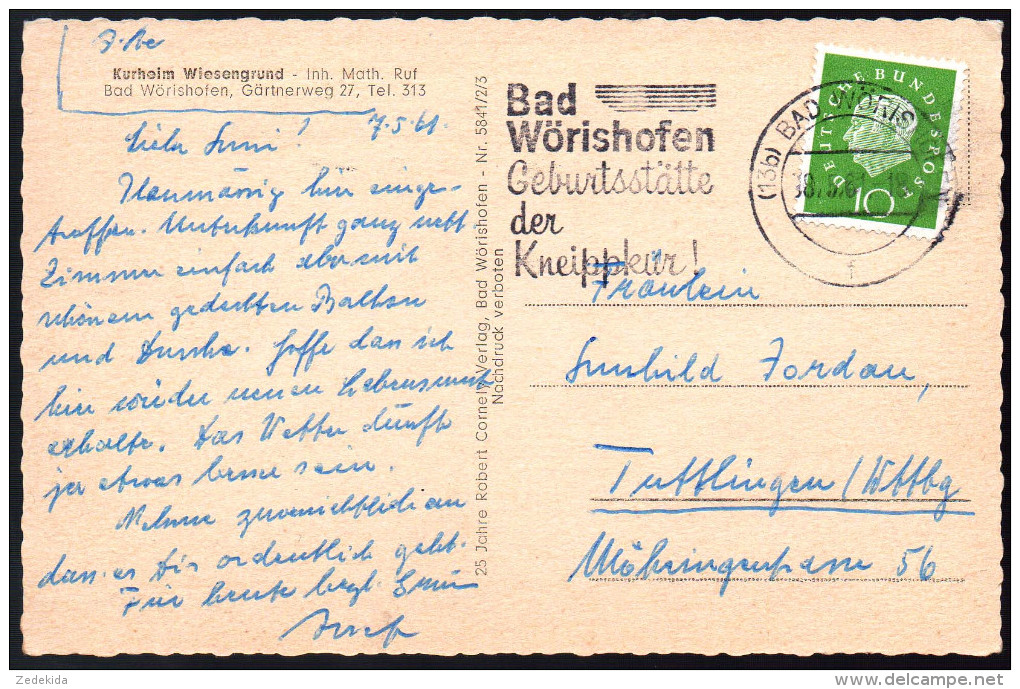 Kurheim Wiesengrund - Inh. Math. Ruf
Bad Wörishofen, Gärtnerweg 27, Tel. 313
7.5.61.
Liebe Suni!
Planmässig hier einge-
troffen. Unterkunft ganz nett
Zimmer einfach aber mit
schönem gedeckten Balkon
und Dusche. Hoffe dass ich
hier wieder neuen Lebensmut
erhalte. Das Wetter dürfte
ja etwas besser sein.
Nehme zuversichtlich an
dass es Dir ordentlich geht.
Für heute herzl. Grüsse
Josef
25 Jahre Robert Cornely Verlag, Bad Wörishofen - Nr. 5841/2/3
Nachdruck verboten
Bad
Wörishofen
Geburtsstätte
der
Kneippkur!
(13b) BAD WÖRIS
f
DEUTSCHE BUNDESPOST
10
Fräulein
Sunhild Jordan,
Tuttlingen/Wttbg
Möhringerstrasse 56
Zedekida
delcampe.net